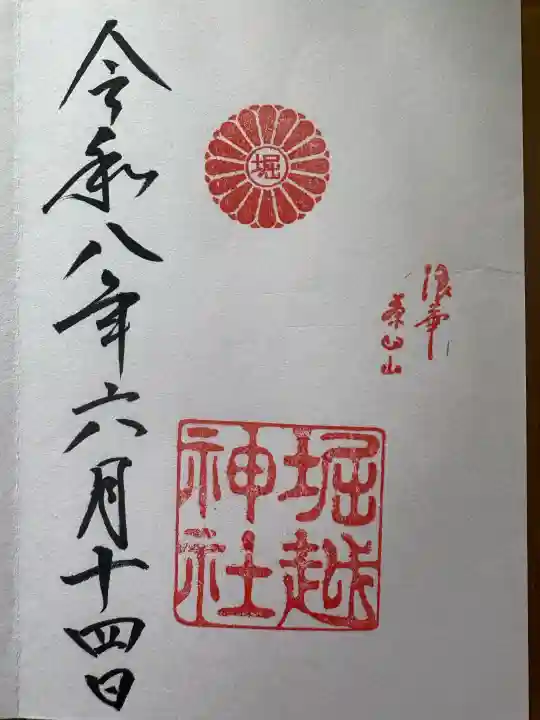 浪華
茶臼山
堀
堀越
神社
令和八年六月十四日